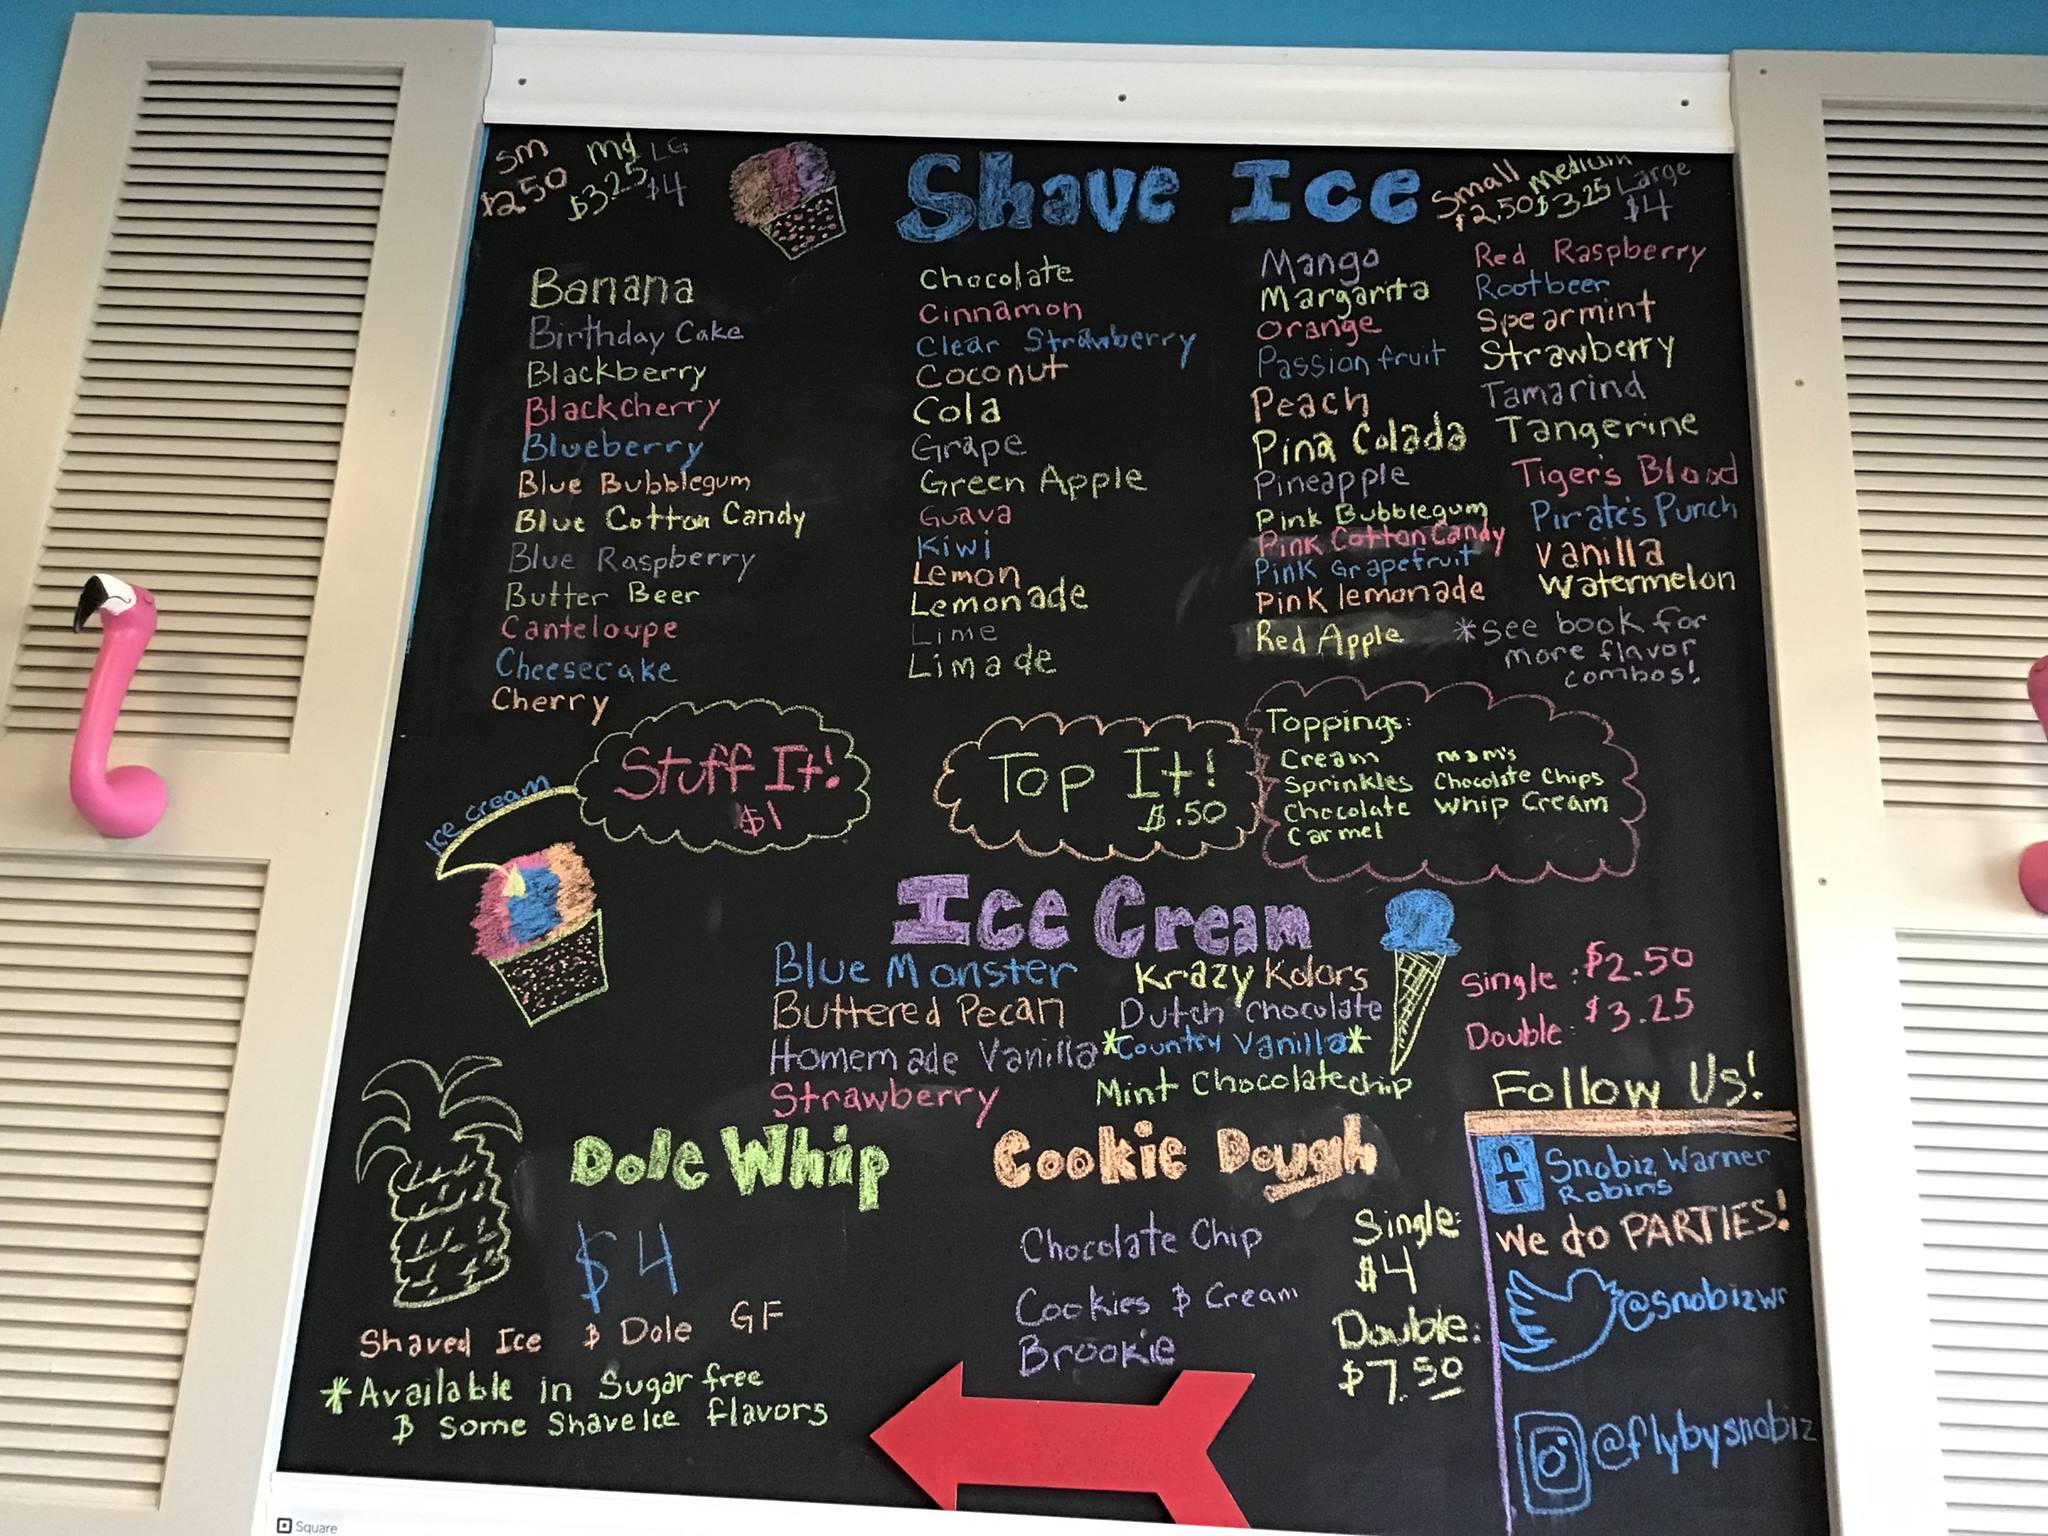 sm md LG
$2.50 $3.25 $4
Shave Ice
Small medium Large
$2.50 $3.25 $4
Banana
Birthday Cake
Blackberry
Blackcherry
Blueberry
Blue Bubblegum
Blue Cotton Candy
Blue Raspberry
Butter Beer
Canteloupe
Cheesecake
Cherry
Chocolate
Cinnamon
Clear Strawberry
Coconut
Cola
Grape
Green Apple
Guava
Kiwi
Lemon
Lemonade
Lime
Limade
Mango
Margarita
Orange
Passion fruit
Peach
Pina Colada
Pineapple
Pink Bubblegum
Pink Cotton Candy
Pink Grapefruit
Pink lemonade
Red Apple
Red Raspberry
Rootbeer
Spearmint
Strawberry
Tamarind
Tangerine
Tiger's Blood
Pirate's Punch
Vanilla
Watermelon
*See book for
more flavor
combos!
Ice cream
Stuff It!
$1
Top It!
$.50
Toppings:
Cream
Sprinkles
Chocolate
Carmel
M&M's
Chocolate Chips
Whip Cream
Ice Cream
Blue Monster
Buttered Pecan
Homemade Vanilla
Strawberry
Krazy Kolors
Dutch Chocolate
*Country Vanilla*
Mint Chocolate chip
Single: $2.50
Double: $3.25
Dole Whip
$4
Shaved Ice & Dole GF
*Available in Sugar free
& Some Shave Ice flavors
Cookie Dough
Chocolate Chip
Cookies & Cream
Brookie
Single:
$4
Double:
$7.50
Follow Us!
f Snobiz Warner
Robins
We do PARTIES!
@snobizwr
@flybysnobiz
Square